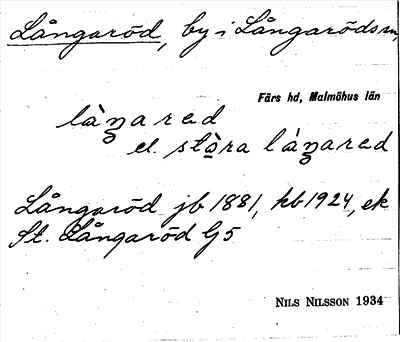 Långaröd, by i Långaröds sn,
Färs hd, Malmöhus län
làŋared
el. stòra láŋared
Långaröd jb 1881, kb 1924, ek
St. Långaröd G5
NILS NILSSON 1934